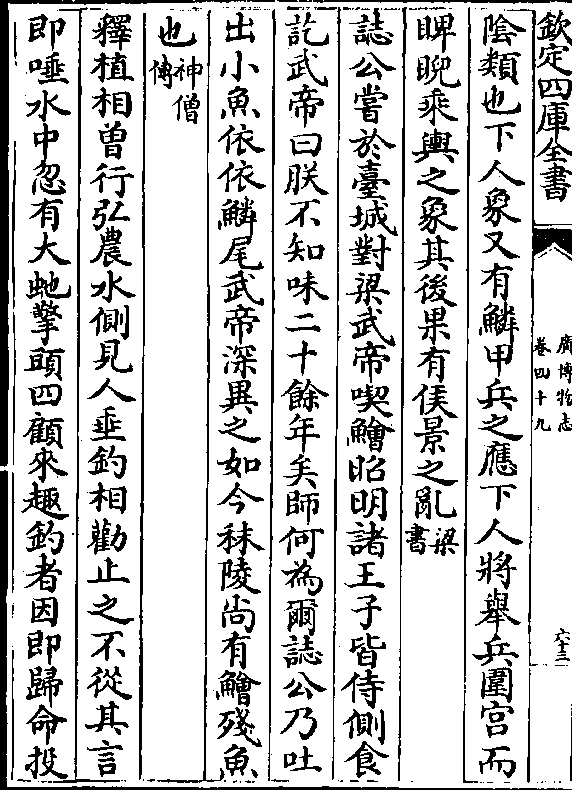 欽定四庫全書
廣博物志
卷四十九
六十三
陰類也下人象又有鱗甲兵之應下人將舉兵圍宫而
睥睨乘輿之象其後果有侯景之亂梁書
誌公嘗於臺城對梁武帝喫鱠昭明諸王子皆侍側食
訖武帝曰朕不知味二十餘年矣師何為爾誌公乃吐
出小魚依依鱗尾武帝深異之如今秣陵尚有鱠殘魚
也神僧傳
釋植相曽行弘農水側見人垂釣相勸止之不從其言
即唾水中忽有大虵擎頭四顧來趣釣者因即歸命投